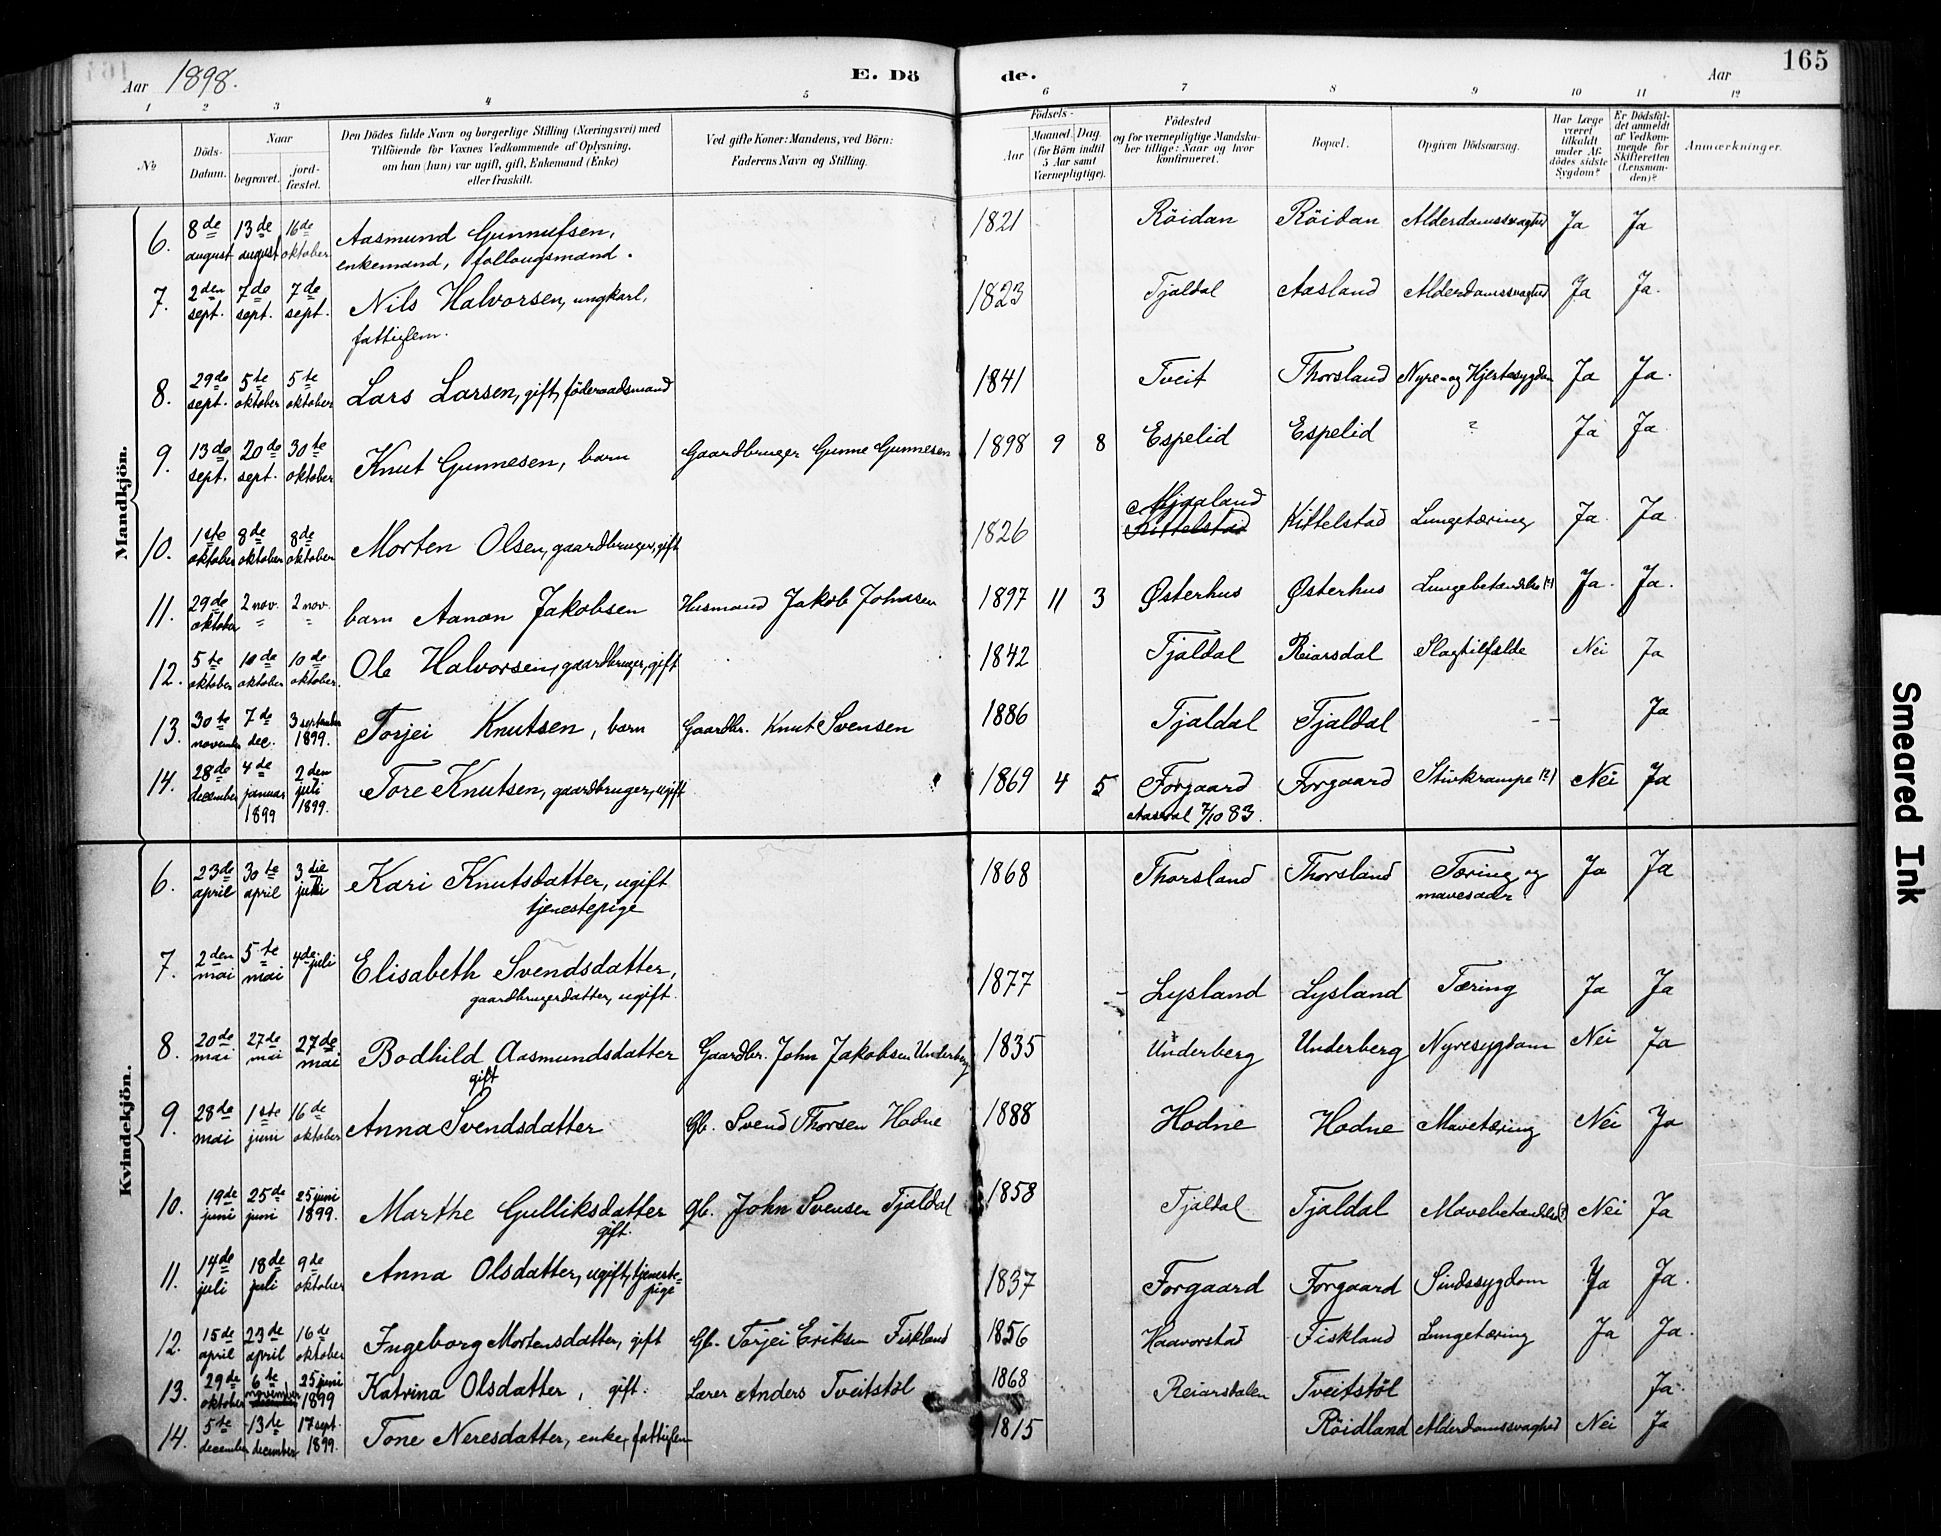 Aar 1898. E. Döde. Aar 165
1 2 3 4 5 6 7 8 9 10 11 12
№ Döds-Datum. Naar begravet. jordfæstet. Den Dödes fulde Navn og borgerlige Stilling (Næringsvei) med Tilföiende for Voxnes Vedkommende af Oplysning, om han (hun) var ugift, gift, Enkemand (Enke) eller fraskilt. Ved gifte Koner: Mandens, ved Börn: Faderens Navn og Stilling. Födsels- Aar Maaned Dag (for Börn indtil 5 Aar samt Værnepligtige). Födested og for værnepligtige Mandskaber tillige: Naar og hvor konfirmeret. Bopæl. Opgiven Dödsaarsag. Har Læge været tilkaldt under Afdödes sidste Sygdom? Er Dödsfaldet anmeldt af Vedkommende for Skifteretten (Lensmanden)? Anmærkninger.
Mandkjön.
6. 8de august 13de august 16de oktober Aasmund Gunnufsen, enkemand, follougsmand. 1821 Röidan Röidan Alderdomssvaghed Ja Ja
7. 2den sept. 7de sept. 7de sept. Nils Halvorsen, ungkarl, fattiglem. 1823 Tjaldal Aasland Alderdomssvaghed Ja Ja.
8. 29de sept. 5te oktober 5te oktober Lars Larsen, gift, föderaadsmand 1841 Tveit Thorsland Nyre- og Hjertesygdom Ja Ja.
9. 13de sept. 20de sept. 30te oktober Knut Gunnesen, barn Gaardbruger Gunne Gunnesen 1898 9 8 Espelid Espelid ? Ja Ja.
10. 1ste oktober 8de oktober 8de oktober Morten Olsen, gaardbruger, gift 1826 Mjaaland Kittelstad Kittelstad Lungetæring Ja Ja
11. 29de oktober 2 nov. 2 nov. barn Aanon Jakobsen Husmand Jakob Johnsen 1897 11 3 Østerhus Østerhus Lungebetændelse (?) Ja. Ja.
12. 5te oktober 10de oktober 10de oktober. Ole Halvorsen, gaardbruger, gift 1842 Tjaldal Reiarsdal Slagtilfælde Nei Ja
13. 30te november 7de dec. 3 september 1899. Torjei Knutsen, barn Gaardbr. Knut Svensen 1886 Tjaldal Tjaldal — Ja
14. 28de december 4de januar 1899 2den juli 1899. Tore Knutsen, gaardbruger, ugift 1869 4 5 Forgaard Aaseral 7/10 83. Forgaard Stivkrampe (?) Nei Ja
Kvindekjön.
6. 23de april 30te april 3die juli Kari Knutsdatter, ugift tjenestepige 1868 Thorsland Thorsland Tæring og mavesaar Ja Ja
7. 2den mai 5te mai 4de juli Elisabeth Svendsdatter, gaardbrugerdatter, ugift. 1877 Lysland Lysland Tæring Ja Ja
8. 20de mai 27de mai 27de mai Bodhild Aasmundsdatter gift Gaardbr. John Jakobsen Underberg 1835 Underberg Underberg Nyresygdom Nei Ja
9. 28de mai 1ste juni 16de oktober Anna Svendsdatter Gb. Svend Thorsen Hodne 1888 Hodne Hodne Mavetæring Nei Ja
10. 19de juni 25de juni 25 juni 1899. Marthe Gulliksdatter gift. gb. John Svensen Tjaldal 1858 Tjaldal Tjaldal Mavebetændelse? Nei Ja
11. 14de juli 18de juli 9de oktober Anna Olsdatter, ugift, tjenestepige 1837 Forgaard Forgaard Sindssygdom Ja Ja.
12. 15de april 23de april 16de oktober Ingeborg Mortensdatter, gift Gb. Torjei Eriksen Fiskland 1856 Haavorstad Fiskland Lungetæring Ja Ja.
13. 29de oktober 6te november december 25 juni 1899 Katrina Olsdatter, gift. Lærer Anders Tveitstöl 1868 Reiarsdalen Tveitstöl Ja.
14. 5te december 13de december 17 sept. 1899. Tone Neresdatter, enke, fattiglem 1815 Röidland Alderdomssvaghed Nei Ja
Smeared Ink